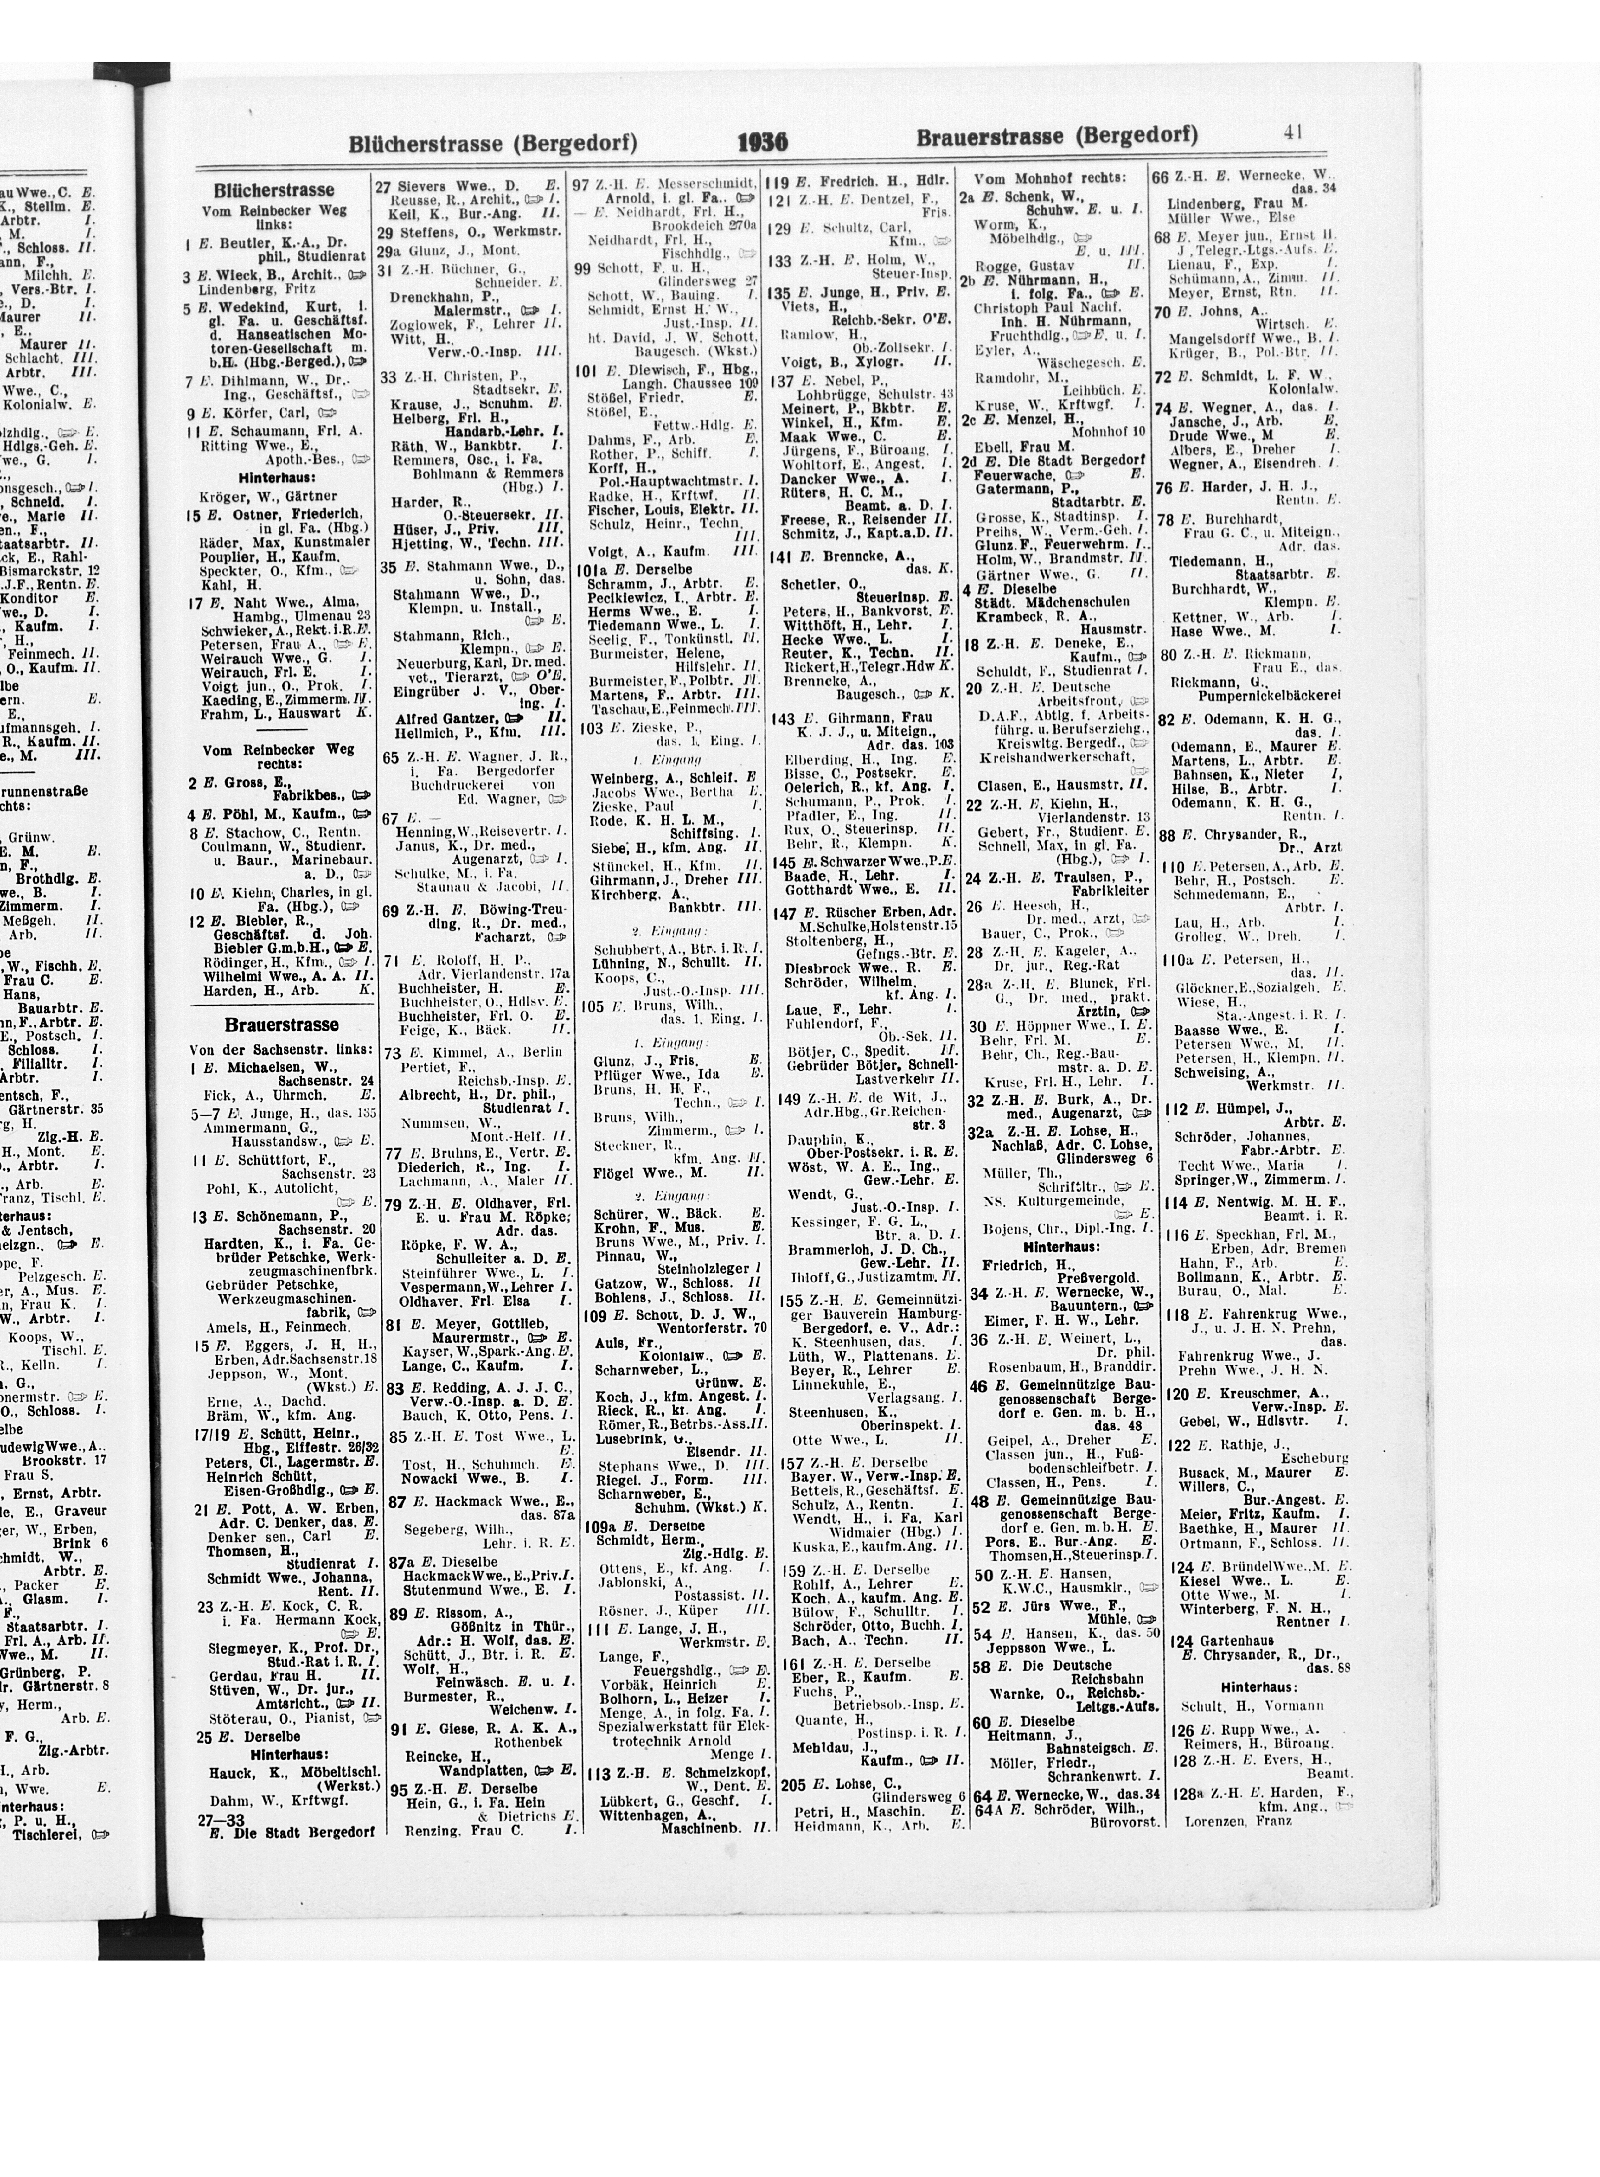 Blücherstrasse (Bergedorf)
1936
Brauerstrasse (Bergedorf)
41
Blücherstrasse
Vom Reinbecker Weg
links:
1 E. Beutler, K.-A., Dr.
phil., Studienrat
3 E. Wieck, B., Archit.,
Lindenberg, Fritz
5 E. Wedekind, Kurt, i.
gl. Fa. u. Geschäftsf.
d. Hanseatischen Mo-
toren-Gesellschaft m.
b.H. (Hbg.-Berged.),
7 E. Dihlmann, W., Dr.-
Ing., Geschäftsf.,
9 E. Körfer, Carl,
11 E. Schaumann, Frl. A.
Ritting Wwe., E.,
Apoth.-Bes.,
Hinterhaus:
Kröger, W., Gärtner
15 E. Ostner, Friederich,
in gl. Fa. (Hbg.)
Räder, Max, Kunstmaler
Pouplier, H., Kaufm.
Speckter, O., Kfm.,
Kahl, H.
17 E. Naht Wwe., Alma,
Hambg., Ulmenau 23
Schwieker, A., Rekt. i.R. E.
Petersen, Frau A., E.
Weirauch Wwe., G. I.
Weirauch, Frl. E. I.
Voigt jun., O., Prok. I.
Kaeding, E., Zimmerm. II.
Frahm, L., Hauswart K.
Vom Reinbecker Weg
rechts:
2 E. Gross, E.,
Fabrikbes.,
4 E. Pöhl, M., Kaufm.,
8 E. Stachow, C., Rentn.
Coulmann, W., Studienr.
u. Baur., Marinebaur.
a. D.,
10 E. Kiehn, Charles, in gl.
Fa. (Hbg.),
12 E. Biebler, R.,
Geschäftsf. d. Joh.
Biebler G.m.b.H., E.
Rödinger, H., Kfm., I.
Wilhelmi Wwe., A. A. II.
Harden, H., Arb. K.
Brauerstrasse
Von der Sachsenstr. links:
1 E. Michaelsen, W.,
Sachsenstr. 24
Fick, A., Uhrmch. E.
5—7 E. Junge, H., das. 135
Ammermann, G.,
Hausstandsw., E.
11 E. Schüttfort, F.,
Sachsenstr. 23
Pohl, K., Autolicht,
E.
13 E. Schönemann, P.,
Sachsenstr. 20
Hardten, K., i. Fa. Ge-
brüder Petschke, Werk-
zeugmaschinenfbrk.
Gebrüder Petschke,
Werkzeugmaschinen-
fabrik,
Amels, H., Feinmech.
15 E. Eggers, J. H. H.,
Erben, Adr. Sachsenstr. 18
Jeppson, W., Mont.
(Wkst.) E.
Erne, A., Dachd.
Bräm, W., kfm. Ang.
17/19 E. Schütt, Heinr.,
Hbg., Eiffestr. 26/32
Peters, Cl., Lagermstr. E.
Heinrich Schütt,
Eisen-Großhdlg., E.
21 E. Pott, A. W. Erben,
Adr. C. Denker, das. E.
Denker sen., Carl E.
Thomsen, H.,
Studienrat I.
Schmidt Wwe., Johanna,
Rent. II.
23 Z.-H. E. Kock, C. R.,
i. Fa. Hermann Kock,
E.
Siegmeyer, K., Prof. Dr.,
Stud.-Rat i. R. I.
Gerdau, Frau H. II.
Stüven, W., Dr. jur.,
Amtsricht., II.
Stöterau, O., Pianist,
25 E. Derselbe
Hinterhaus:
Hauck, K., Möbeltischl.
(Werkst.)
Dahm, W., Krftwgf.
27—33
E. Die Stadt Bergedorf
27 Sievers Wwe., D. E.
Reusse, R., Archit., I.
Keil, K., Bur.-Ang. II.
29 Steffens, O., Werkmstr.
29a Glunz, J., Mont.
31 Z.-H. Büchner, G.,
Schneider. E.
Drenckhahn, P.,
Malermstr., I.
Zoglowek, F., Lehrer II.
Witt, H.,
Verw.-O.-Insp. III.
33 Z.-H. Christen, P.,
Stadtsekr. E.
Krause, J., Schuhm. E.
Helberg, Frl. H.,
Handarb.-Lehr. I.
Räth, W., Bankbtr. I.
Remmers, Osc., i. Fa.
Bohlmann & Remmers
(Hbg.) I.
Harder, R.,
O.-Steuersekr. II.
Hüser, J., Priv. III.
Hjetting, W., Techn. III.
35 E. Stahmann Wwe., D.,
u. Sohn, das.
Stahmann Wwe., D.,
Klempn. u. Install.,
E.
Stahmann, Rich.,
Klempn., E.
Neuerburg, Karl, Dr. med.
vet., Tierarzt, O'E.
Eingrüber J. V., Ober-
ing. I.
Alfred Gantzer, II.
Hellmich, P., Kfm. III.
65 Z.-H. E. Wagner, J. R.,
i. Fa. Bergedorfer
Buchdruckerei von
Ed. Wagner,
67 E. —
Henning, W., Reisevertr. I.
Janus, K., Dr. med.,
Augenarzt, I.
Schulke, M., i. Fa.
Staunau & Jacobi, II.
69 Z.-H. E. Böwing-Treu-
ding, R., Dr. med.,
Facharzt,
71 E. Roloff, H. P.,
Adr. Vierlandenstr. 17a
Buchheister, H. E.
Buchheister, O., Hdlsv. E.
Buchheister, Frl. O. E.
Feige, K., Bäck. II.
73 E. Kimmel, A., Berlin
Pertiet, F.,
Reichsb.-Insp. E.
Albrecht, H., Dr. phil.,
Studienrat I.
Nummsen, W.,
Mont.-Helf. II.
77 E. Bruhns, E., Vertr. E.
Diederich, R., Ing. I.
Lachmann, A., Maler II.
79 Z.-H. E. Oldhaver, Frl.
E. u. Frau M. Röpke;
Adr. das.
Röpke, F. W. A.,
Schulleiter a. D. E.
Steinführer Wwe., L. I.
Vespermann, W., Lehrer I.
Oldhaver, Frl. Elsa I.
81 E. Meyer, Gottlieb,
Maurermstr., E.
Kayser, W., Spark.-Ang. E.
Lange, C., Kaufm. I.
83 E. Redding, A. J. J. C.,
Verw.-O.-Insp. a. D. E.
Bauch, K. Otto, Pens. I.
85 Z.-H. E. Tost Wwe., L.
E.
Tost, H., Schuhmch. E.
Nowacki Wwe., B. I.
87 E. Hackmack Wwe., E.,
das. 87a
Segeberg, Wilh.,
Lehr. i. R. E.
87a E. Dieselbe
Hackmack Wwe., E., Priv. I.
Stutenmund Wwe., E. I.
89 E. Rissom, A.,
Gößnitz in Thür.,
Adr.: H. Wolf, das. E.
Schütt, J., Btr. i. R. E.
Wolf, H.,
Feinwäsch. E. u. I.
Burmester, R.,
Weichenw. I.
91 E. Giese, R. A. K. A.,
Rothenbek
Reincke, H.,
Wandplatten, E.
95 Z.-H. E. Derselbe
Hein, G., i. Fa. Hein
& Dietrichs E.
Renzing, Frau C. I.
97 Z.-H. E. Messerschmidt,
Arnold, i. gl. Fa.,
— E. Neidhardt, Frl. H.,
Brookdeich 270a
Neidhardt, Frl. H.,
Fischhdlg.,
99 Schott, F. u. H.,
Glindersweg 27
Schott, W., Bauing. I.
Schmidt, Ernst H. W.,
Just.-Insp. II.
ht. David, J. W. Schott,
Baugesch. (Wkst.)
101 E. Dlewisch, F., Hbg.,
Langh. Chaussee 109
Stößel, Friedr. E.
Stößel, E.,
Fettw.-Hdlg. E.
Dahms, F., Arb. E.
Rother, P., Schiff. I.
Korff, H.,
Pol.-Hauptwachtmstr. I.
Radke, H., Krftwf. II.
Fischer, Louis, Elektr. II.
Schulz, Heinr., Techn.
III.
Voigt, A., Kaufm. III.
101a E. Derselbe
Schramm, J., Arbtr. E.
Pecikiewicz, I., Arbtr. E.
Herms Wwe., E. I.
Tiedemann Wwe., L. I.
Seelig, F., Tonkünstl. II.
Burmeister, Helene,
Hilfslehr. II.
Burmeister, F., Polbtr. II.
Martens, F., Arbtr. III.
Taschau, E., Feinmech. III.
103 E. Zieske, P.,
das. 1. Eing. I.
1. Eingang
Weinberg, A., Schleif. E
Jacobs Wwe., Bertha E.
Zieske, Paul I.
Rode, K. H. L. M.,
Schiffsing. I.
Siebe, H., kfm. Ang. II.
Stünckel, H., Kfm. II.
Gihrmann, J., Dreher III.
Kirchberg, A.,
Bankbtr. III.
2. Eingang:
Schubbert, A., Btr. i. R. I.
Lühning, N., Schullt. II.
Koops, C.,
Just.-O.-Insp. III.
105 E. Bruns, Wilh.,
das. 1. Eing. I.
1. Eingang:
Glunz, J., Fris. E.
Pflüger Wwe., Ida E.
Bruns, H. H. F.,
Techn., I.
Bruns, Wilh.,
Zimmerm., I.
Steckner, R.,
kfm. Ang. II.
Flögel Wwe., M. II.
2. Eingang:
Schürer, W., Bäck. E.
Krohn, F., Mus. E.
Bruns Wwe., M., Priv. I.
Pinnau, W.,
Steinholzleger I
Gatzow, W., Schloss. II
Bohlens, J., Schloss. II.
109 E. Schott, D. J. W.,
Wentorferstr. 70
Auls, Fr.,
Kolonialw., E.
Scharnweber, L.,
Grünw. E.
Koch, J., kfm. Angest. I.
Rieck, R., kf. Ang. I.
Römer, R., Betrbs.-Ass. II.
Lusebrink, G.,
Eisendr. II.
Stephans Wwe., D. III.
Riegel, J., Form. III.
Scharnweber, E.,
Schuhm. (Wkst.) K.
109a E. Derselbe
Schmidt, Herm.,
Zig.-Hdlg. E.
Ottens, E., kf. Ang. I.
Jablonski, A.,
Postassist. II.
Rösner, J., Küper III.
111 E. Lange, J. H.,
Werkmstr. E.
Lange, F.,
Feuergshdlg., E.
Vorbäk, Heinrich E.
Bolhorn, L., Heizer I.
Menge, A., in folg. Fa. I.
Spezialwerkstatt für Elek-
trotechnik Arnold
Menge I.
113 Z.-H. E. Schmelzkopf,
W., Dent. E.
Lübkert, G., Geschf. I.
Wittenhagen, A.,
Maschinenb. II.
119 E. Fredrich. H., Hdlr.
121 Z.-H. E. Dentzel, F.,
Fris.
129 E. Schultz, Carl,
Kfm.,
133 Z.-H. E. Holm, W.,
Steuer-Insp.
135 E. Junge, H., Priv. E.
Viets, H.,
Reichb.-Sekr. O'E.
Ramlow, H.,
Ob.-Zollsekr. I.
Voigt, B., Xylogr. II.
137 E. Nebel, P.,
Lohbrügge, Schulstr. 43
Meinert, P., Bkbtr. E.
Winkel, H., Kfm. E.
Maak Wwe., C. E.
Jürgens, F., Büroang. I.
Wohltorf, E., Angest. I.
Dancker Wwe., A. I.
Rüters, H. C. M.,
Beamt. a. D. I.
Freese, R., Reisender II.
Schmitz, J., Kapt.a.D. II.
141 E. Brenncke, A.,
das. K.
Schetler, O.,
Steuerinsp. E.
Peters, H., Bankvorst. E.
Witthöft, H., Lehr. I.
Hecke Wwe., L. I.
Reuter, K., Techn. II.
Rickert, H., Telegr. Hdw K.
Brenncke, A.,
Baugesch., K.
143 E. Gihrmann, Frau
K. J. J., u. Miteign.,
Adr. das. 103
Elberding, H., Ing. E.
Bisse, C., Postsekr. E.
Oelerich, R., kf. Ang. I.
Schumann, P., Prok. I.
Pfadler, E., Ing. II.
Rux, O., Steuerinsp. II.
Behr, R., Klempn. K.
145 E. Schwarzer Wwe., P. E.
Baade, H., Lehr. I.
Gotthardt Wwe., E. II.
147 E. Rüscher Erben, Adr.
M. Schulke, Holstenstr. 15
Stoltenberg, H.,
Gefngs.-Btr. E.
Diesbrock Wwe., R. E.
Schröder, Wilhelm,
kf. Ang. I.
Laue, F., Lehr. I.
Fuhlendorf, F.,
Ob.-Sek. II.
Bötjer, C., Spedit. II.
Gebrüder Bötjer, Schnell-
Lastverkehr II.
149 Z.-H. E. de Wit, J.,
Adr. Hbg., Gr. Reichen-
str. 3
Dauphin, K.,
Ober-Postsekr. i. R. E.
Wöst, W. A. E., Ing.,
Gew.-Lehr. E.
Wendt, G.,
Just.-O.-Insp. I.
Kessinger, F. G. L.,
Btr. a. D. I.
Brammerloh, J. D. Ch.,
Gew.-Lehr. II.
Ihloff, G., Justizamtm. II.
155 Z.-H. E. Gemeinnützi-
ger Bauverein Hamburg-
Bergedorf, e. V., Adr.:
K. Steenhusen, das. I.
Lüth, W., Plattenans. E.
Beyer, R., Lehrer E.
Linnekuhle, E.,
Verlagsang. I.
Steenhusen, K.,
Oberinspekt. I.
Otte Wwe., L. II.
157 Z.-H. E. Derselbe
Bayer, W., Verw.-Insp. E.
Bettels, R., Geschäftsf. E.
Schulz, A., Rentn. I.
Wendt, H., i. Fa. Karl
Widmaier (Hbg.) I.
Kuska, E., kaufm. Ang. II.
159 Z.-H. E. Derselbe
Rohlf, A., Lehrer E.
Koch, A., kaufm. Ang. E.
Bülow, F., Schulltr. I.
Schröder, Otto, Buchh. I.
Bach, A., Techn. II.
161 Z.-H. E. Derselbe
Eber, R., Kaufm. E.
Fuchs, P.,
Betriebsob.-Insp. E.
Quante, H.,
Postinsp. i. R. I.
Mehldau, J.,
Kaufm., II.
205 E. Lohse, C.,
Glindersweg 6
Petri, H., Maschin. E.
Heidmann, K., Arb. E.
Vom Mohnhof rechts:
2a E. Schenk, W.,
Schuhw. E. u. I.
Worm, K.,
Möbelhdlg.,
E. u. III.
Rogge, Gustav II.
2b E. Nührmann, H.,
i. folg. Fa., E.
Christoph Paul Nachf.
Inh. H. Nührmann,
Fruchthdlg., E. u. I.
Eyler, A.,
Wäschegesch. E.
Ramdohr, M.,
Leihbüch. E.
Kruse, W., Krftwgf. I.
2c E. Menzel, H.,
Mohnhof 10
Ebell, Frau M.
2d E. Die Stadt Bergedorf
Feuerwache, E.
Gatermann, P.,
Stadtarbtr. E.
Grosse, K., Stadtinsp. I.
Preihs, W., Verm.-Geh. I.
Glunz, F., Feuerwehrm. I.
Holm, W., Brandmstr. II.
Gärtner Wwe., G. II.
4 E. Dieselbe
Städt. Mädchenschulen
Krambeck, R. A.,
Hausmstr.
18 Z.-H. E. Deneke, E.,
Kaufm.,
Schuldt, F., Studienrat I.
20 Z.-H. E. Deutsche
Arbeitsfront,
D.A.F., Abtlg. f. Arbeits-
führg. u. Berufserziehg.,
Kreiswltg. Bergedf.,
Kreishandwerkerschaft,
Clasen, E., Hausmstr. II.
22 Z.-H. E. Kiehn, H.,
Vierlandenstr. 13
Gebert, Fr., Studienr. E.
Schnell, Max, in gl. Fa.
(Hbg.), I.
24 Z.-H. E. Traulsen, P.,
Fabrikleiter
26 E. Heesch, H.,
Dr. med., Arzt,
Bauer, C., Prok.,
28 Z.-H. E. Kageler, A.,
Dr. jur., Reg.-Rat
28a Z.-H. E. Blunck, Frl.
G., Dr. med., prakt.
Ärztin,
30 E. Höppner Wwe., I. E.
Behr, Frl. M. E.
Behr, Ch., Reg.-Bau-
mstr. a. D. E.
Kruse, Frl. H., Lehr. I.
32 Z.-H. E. Burk, A., Dr.
med., Augenarzt,
32a Z.-H. E. Lohse, H.,
Nachlaß, Adr. C. Lohse,
Glindersweg 6
Müller, Th.,
Schriftltr., E.
NS. Kulturgemeinde,
E.
Bojens, Chr., Dipl.-Ing. I.
Hinterhaus:
Friedrich, H.,
Preßvergold.
34 Z.-H. E. Wernecke, W.,
Bauuntern.,
Eimer, F. H. W., Lehr.
36 Z.-H. E. Weinert, L.,
Dr. phil.
Rosenbaum, H., Branddir.
46 E. Gemeinnützige Bau-
genossenschaft Berge-
dorf e. Gen. m. b. H.,
das. 48
Geipel, A., Dreher E.
Classen jun., H., Fuß-
bodenschleifbetr. I.
Classen, H., Pens. I.
48 E. Gemeinnützige Bau-
genossenschaft Berge-
dorf e. Gen. m. b. H. E.
Pors, E., Bur.-Ang. E.
Thomsen, H., Steuerinsp. I.
50 Z.-H. E. Hansen,
K.W.C., Hausmklr.,
52 E. Jürs Wwe., F.,
Mühle,
54 E. Hansen, K., das. 50
Jeppsson Wwe., L.
58 E. Die Deutsche
Reichsbahn
Warnke, O., Reichsb.-
Leitgs.-Aufs.
60 E. Dieselbe
Heitmann, J.,
Bahnsteigsch. E.
Möller, Friedr.,
Schrankenwrt. I.
64 E. Wernecke, W., das. 34
64A E. Schröder, Wilh.,
Bürovorst.
66 Z.-H. E. Wernecke, W.,
das. 34
Lindenberg, Frau M.
Müller Wwe., Else
68 E. Meyer jun., Ernst II.
J., Telegr.-Ltgs.-Aufs. E.
Lienau, F., Exp. I.
Schümann, A., Zimm. II.
Meyer, Ernst, Rtn. II.
70 E. Johns, A.,
Wirtsch. E.
Mangelsdorff Wwe., B. I.
Krüger, B., Pol.-Btr. II.
72 E. Schmidt, L. F. W.,
Kolonialw.
74 E. Wegner, A., das. I.
Jansche, J., Arb. E.
Drude Wwe., M E.
Albers, E., Dreher I.
Wegner, A., Eisendreh. I.
76 E. Harder, J. H. J.,
Rentn. E.
78 E. Burchhardt,
Frau G. C., u. Miteign.,
Adr. das.
Tiedemann, H.,
Staatsarbtr. E.
Burchhardt, W.,
Klempn. E.
Kettner, W., Arb. I.
Hase Wwe., M. I.
80 Z.-H. E. Rickmann,
Frau E., das.
Rickmann, G.,
Pumpernickelbäckerei
82 E. Odemann, K. H. G.,
das. I.
Odemann, E., Maurer E.
Martens, L., Arbtr. E.
Bahnsen, K., Nieter I,
Hilse, B., Arbtr. I.
Odemann, K. H. G.,
Rentn. I.
88 E. Chrysander, R.,
Dr., Arzt
110 E. Petersen, A., Arb. E.
Behr, H., Postsch. E.
Schmedemann, E.,
Arbtr. I.
Lau, H., Arb. I.
Grolleg, W., Dreh. I.
110a E. Petersen, H.,
das. II.
Glöckner, E., Sozialgeh. E.
Wiese, H.,
Sta.-Angest. i. R. I.
Baasse Wwe., E. I.
Petersen Wwe., M. II.
Petersen, H., Klempn. II.
Schweising, A.,
Werkmstr. II.
112 E. Hümpel, J.,
Arbtr. E.
Schröder, Johannes,
Fabr.-Arbtr. E.
Techt Wwe., Maria I.
Springer, W., Zimmerm. I.
114 E. Nentwig, M. H. F.,
Beamt. i. R.
116 E. Speckhan, Frl. M.,
Erben, Adr. Bremen
Hahn, F., Arb. E.
Bollmann, K., Arbtr. E.
Burau, O., Mal. E.
118 E. Fahrenkrug Wwe.,
J., u. J. H. N. Prehn,
das.
Fahrenkrug Wwe., J.
Prehn Wwe., J. H. N.
120 E. Kreuschmer, A.,
Verw.-Insp. E.
Gebel, W., Hdlsvtr. I.
122 E. Rathje, J.,
Escheburg
Busack, M., Maurer E.
Willers, C.,
Bur.-Angest. E.
Meier, Fritz, Kaufm. I.
Baethke, H., Maurer II.
Ortmann, F., Schloss. II.
124 E. Bründel Wwe., M. E.
Kiesel Wwe., L. E.
Otte Wwe., M. I.
Winterberg, F. N. H.,
Rentner I.
124 Gartenhaus
E. Chrysander, R., Dr.,
das. 88
Hinterhaus:
Schult, H., Vormann
126 E. Rupp Wwe., A.
Reimers, H., Büroang.
128 Z.-H. E. Evers, H.,
Beamt.
128a Z.-H. E. Harden, F.,
kfm. Ang.,
Lorenzen, Franz